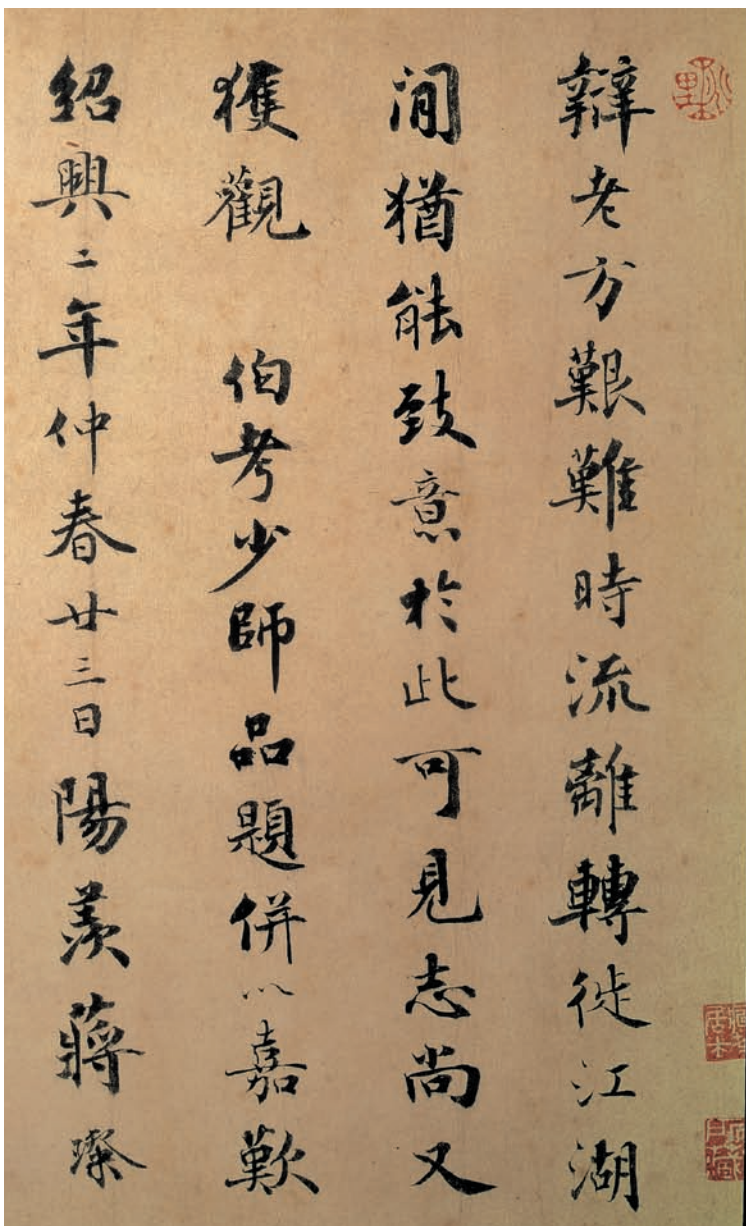 辯老方艱難時流離轉徙江湖
間猶能致意於此可見志尚又
獲觀　伯考少師品題併以嘉歎
紹興二年仲春廿三日陽羨蔣璨